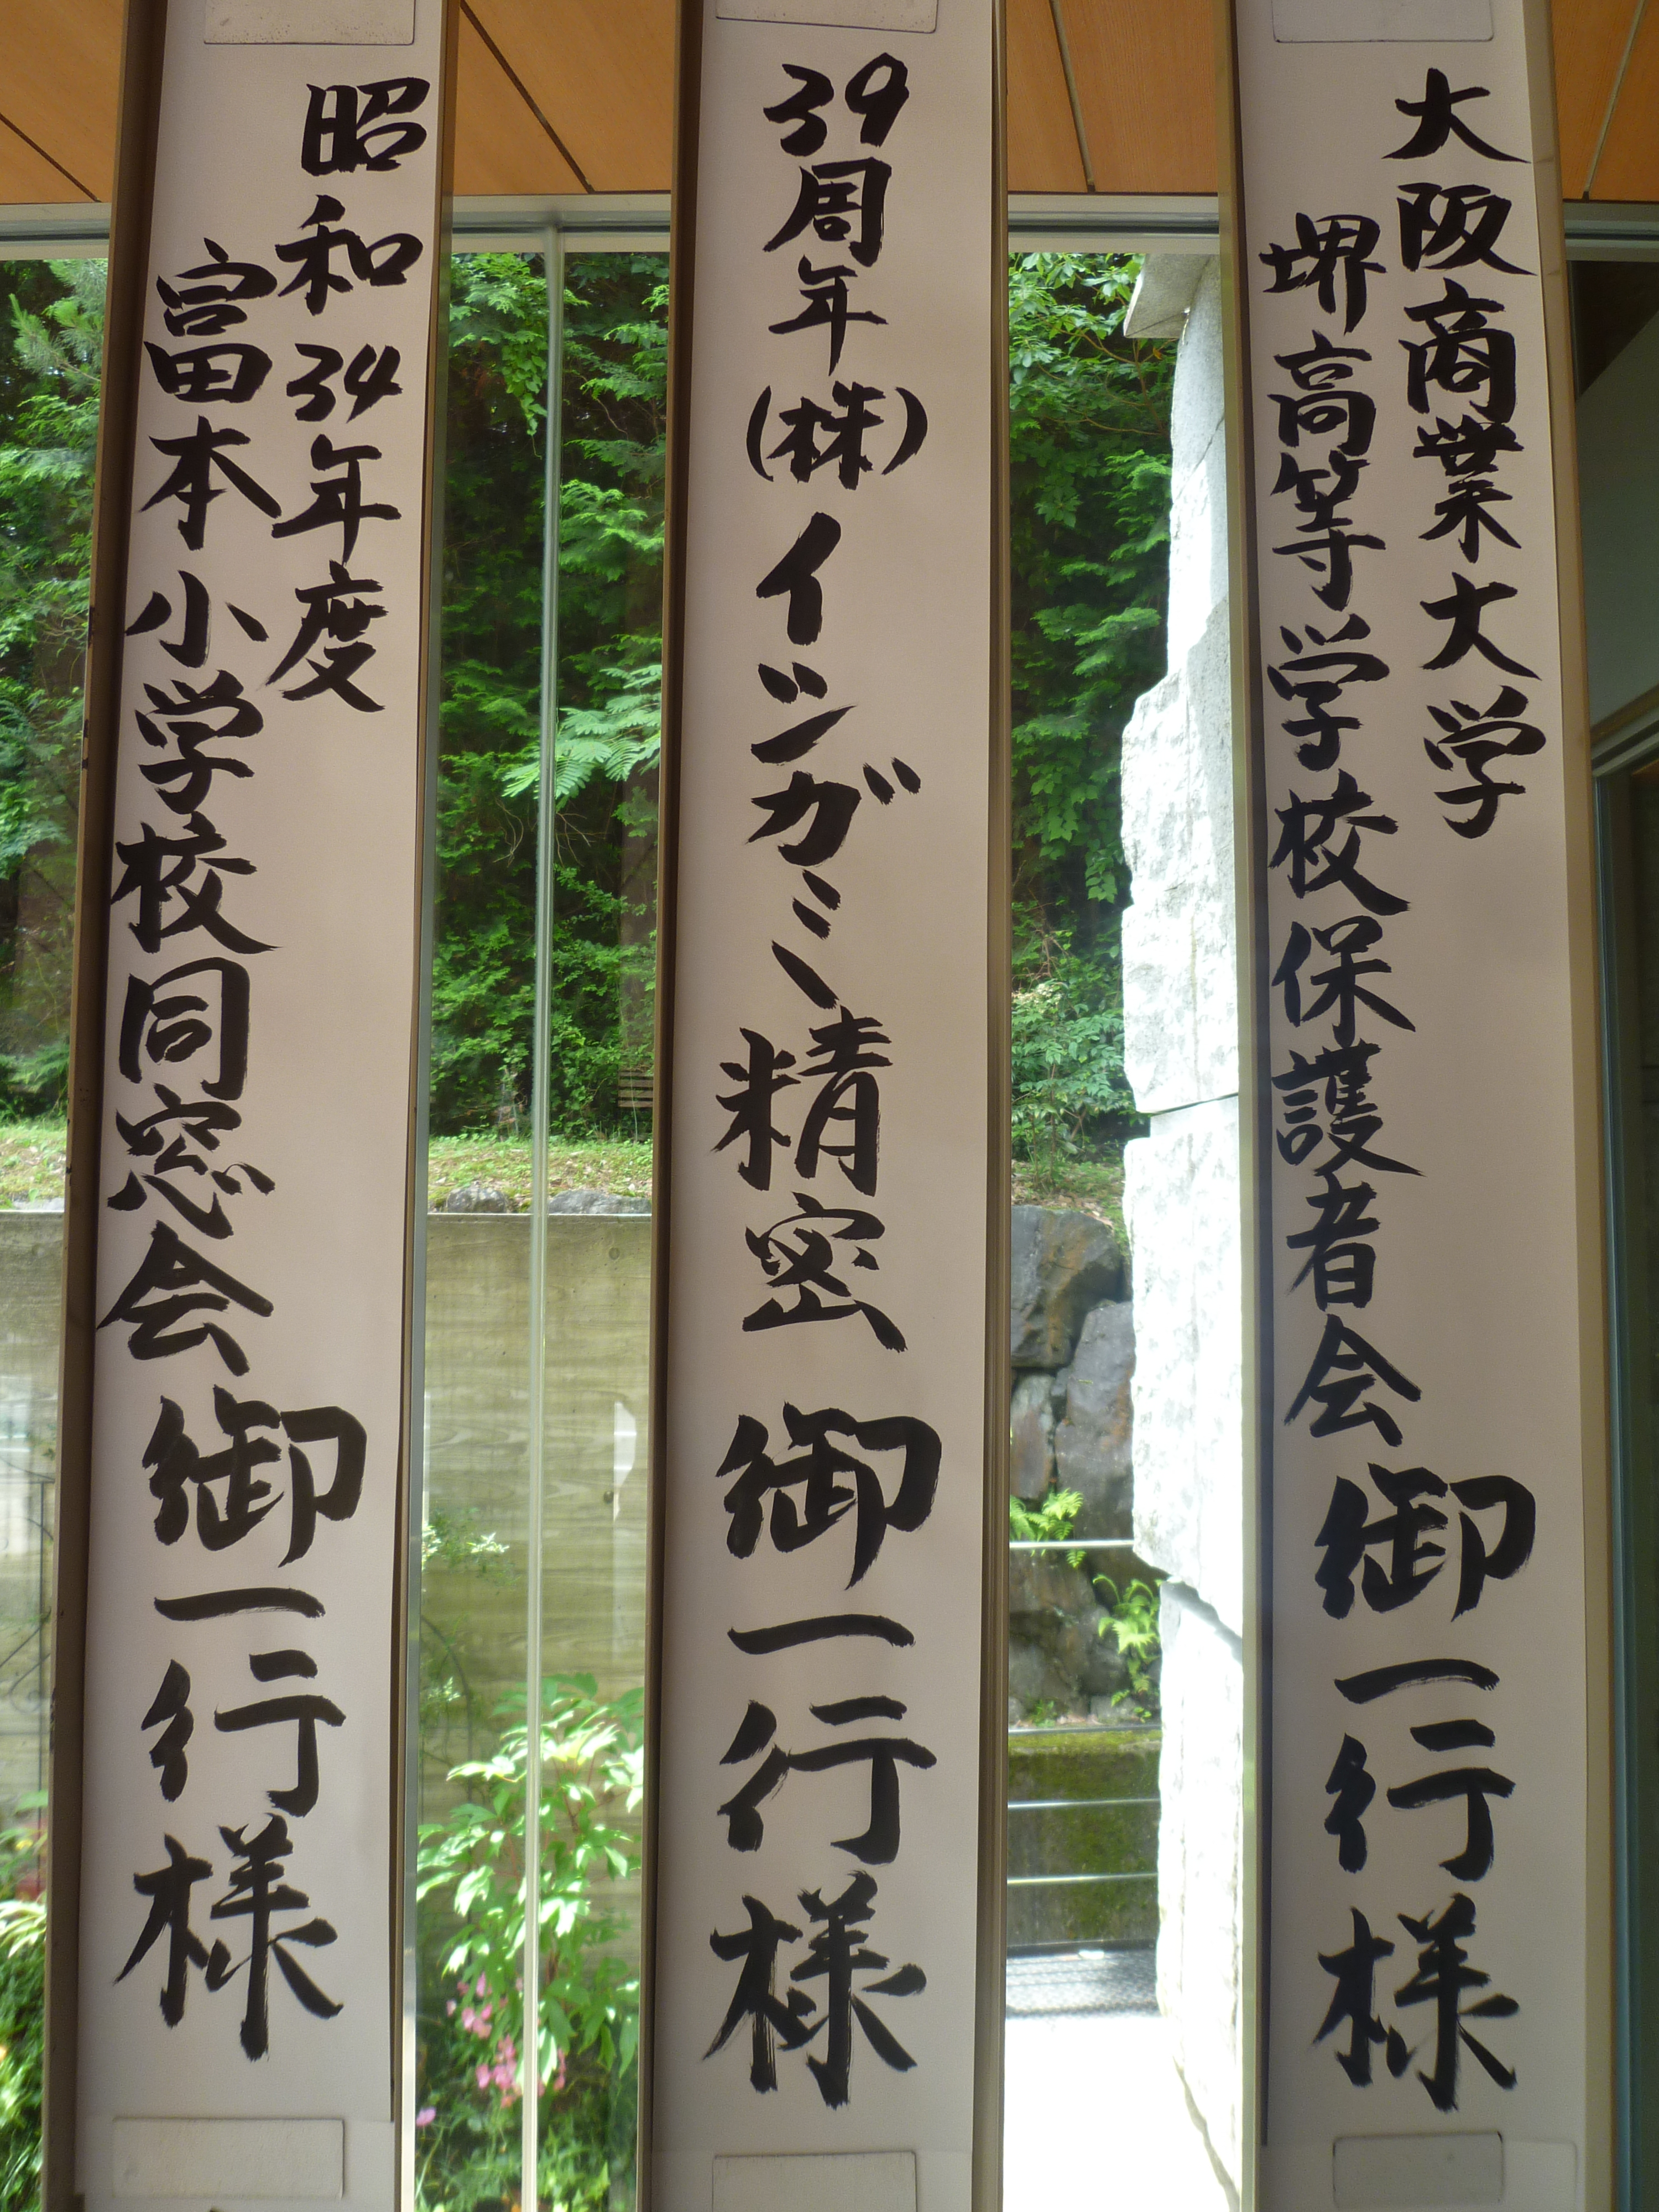 大阪商業大学
堺高等学校保護者会
御一行様
39周年(株)イツガミ精密御一行様
昭和34年度
富本小学校同窓会
御一行様